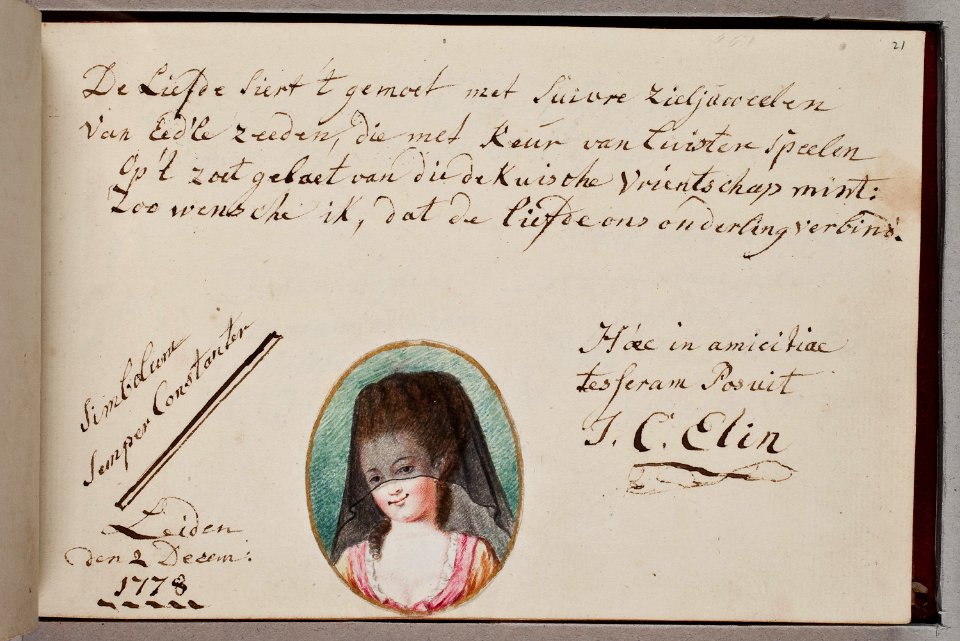 21
De Liefde Siert 't gemoet met Suivre Zieljuweelen
Van Eed'le zeeden, die met Keur van luister Speelen
Op't zoet gelaet van die de Kuische Vrientschap mint:
Zoo wensche ik, dat de liefde ons onderling verbind.
Simbolum
Semper Constanter
Leiden
den 2 Decem:
1778
Haec in amicitiae
tesseram Posuit
J. C. Elin